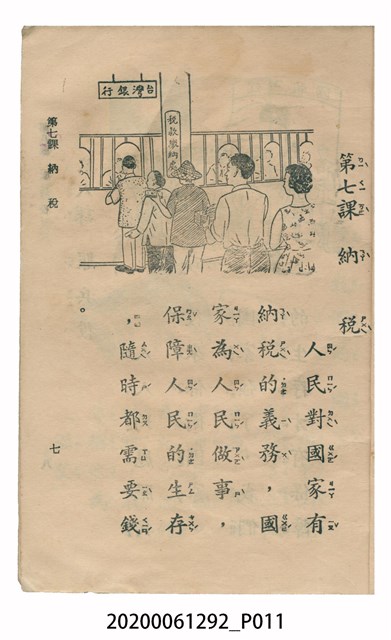 第七課 納稅
台灣銀行
稅款繳納處
人民對國家有
納稅的義務，國
家為人民做事，
保障人民的生存
，隨時都需要錢
。
第七課 納稅
七
20200061292_P011